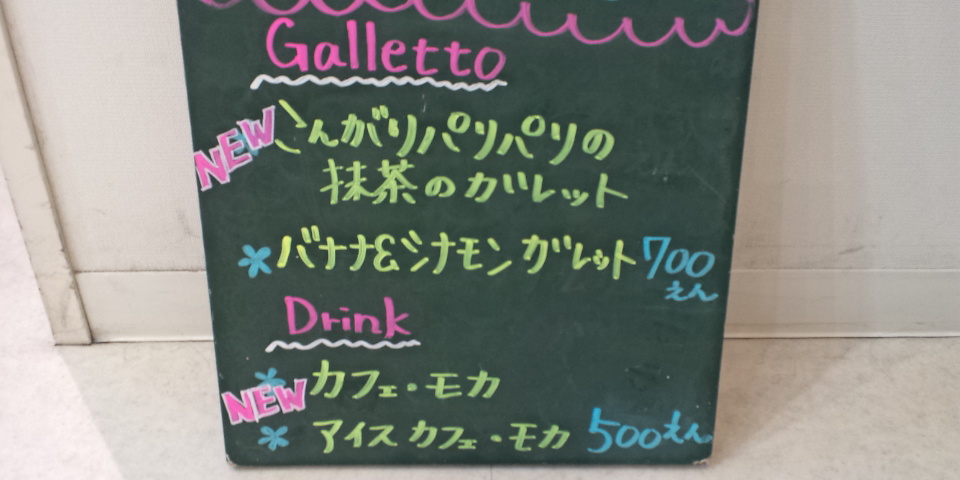 Galletto
NEW
こんがりパリパリの
抹茶のガレット
バナナ&シナモンガレット 700
えん
Drink
NEW
カフェ・モカ
アイスカフェ・モカ 500えん